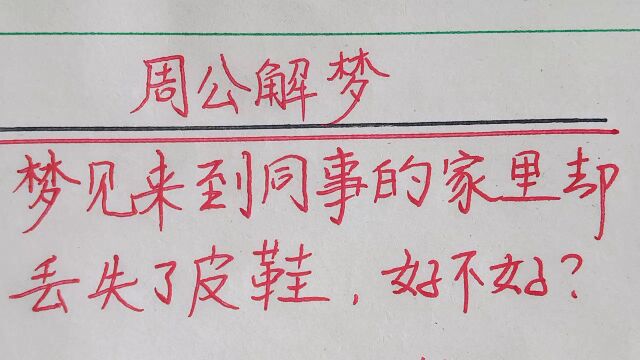 周公解梦
梦见来到同事的家里却
丢失了皮鞋，好不好？